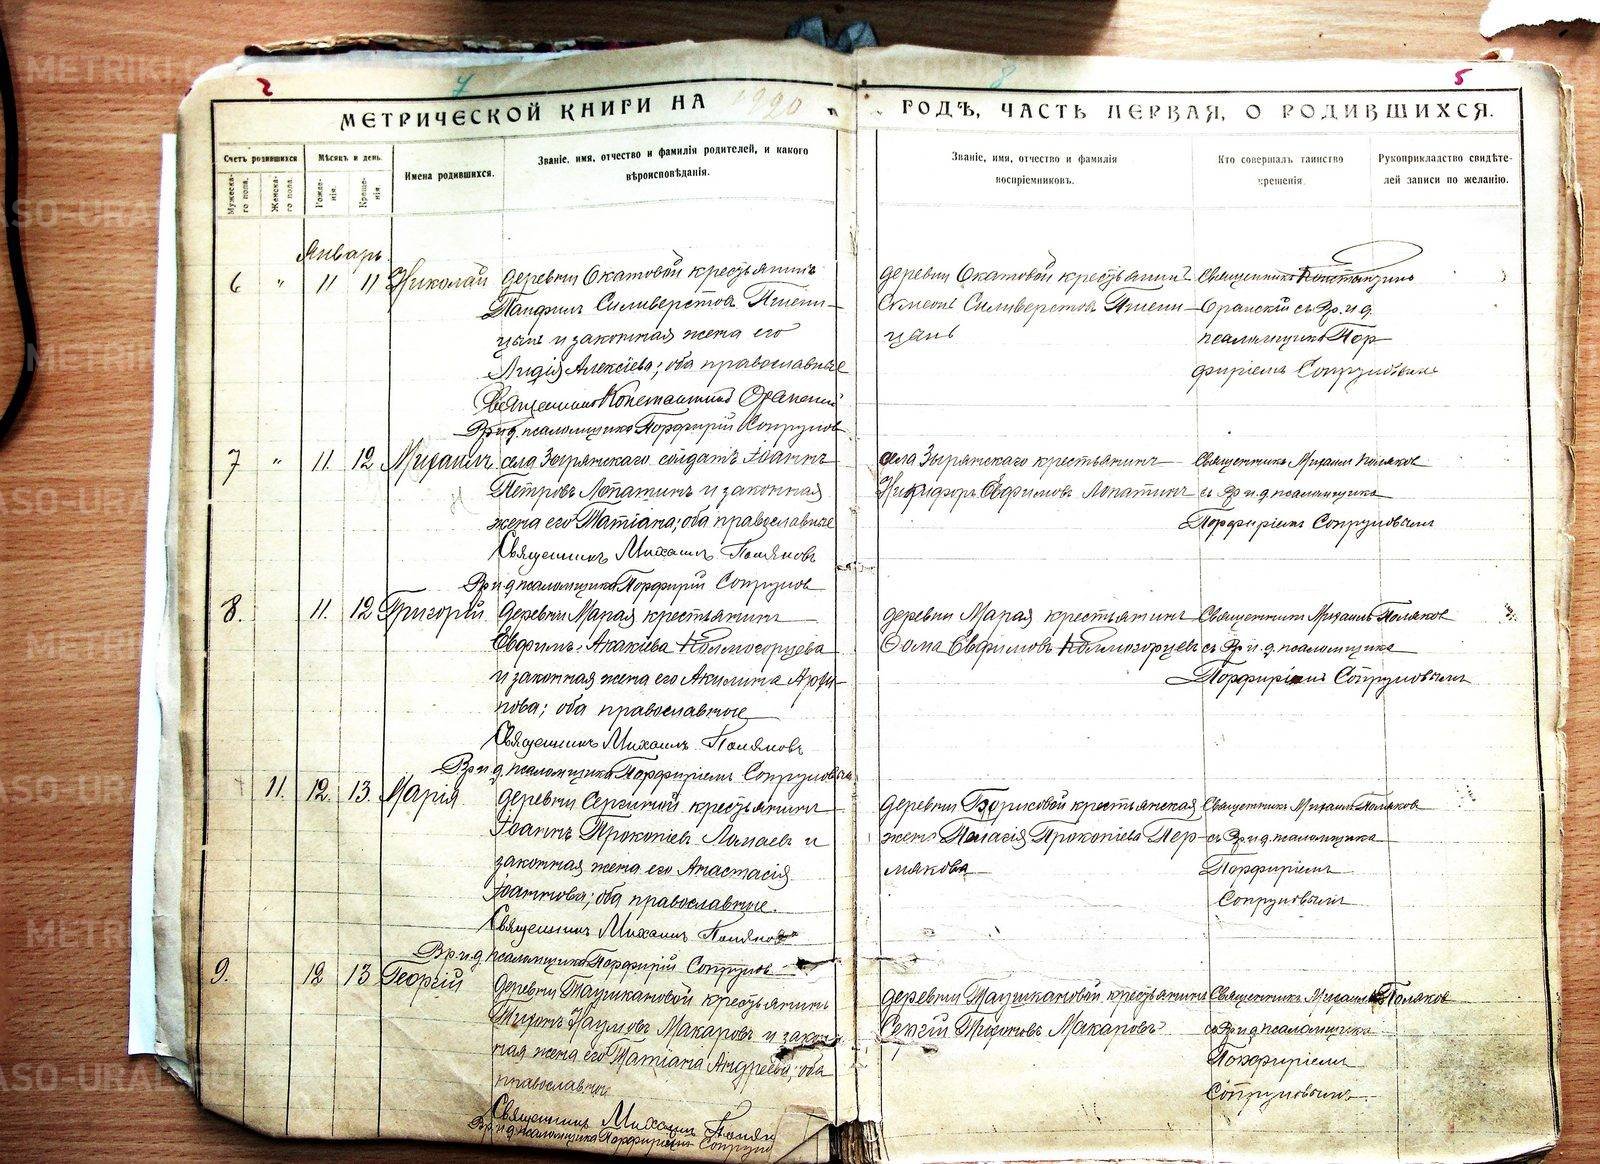 2
7
8
5
МЕТРИЧЕСКОЙ КНИГИ НА 1920
ГОДѢ, ЧАСТЬ ПЕРВАЯ, О РОДИВШИХСЯ.
Счетъ родившихся
Мужеска-го пола.
Женска-го пола.
Мѣсяцъ и день.
Рожде-нія.
Креще-нія.
Имена родившихся.
Званіе, имя, отчество и фамилія родителей, и какого
вѣроисповѣданія.
Званіе, имя, отчество и фамилія
воспріемниковъ.
Кто совершалъ таинство
крещенія.
Рукоприкладство свидѣте-
лей записи по желанію.
Январь
6 " 11 11 Николай
деревни Окатовой крестьянинъ
Панфилъ Силиверстовъ Пшени-
цынъ и законная жена его
Лидія Алексіева; оба православные
Священникъ Константинъ Оранскій
Вр. и. д. псаломщика Порфирій Сопрунов
деревни Окатовой крестьянинъ
Симеонъ Силиверстовъ Пшени-
цынъ
Священникъ Константинъ
Оранскій съ Вр. и. д.
псаломщика Пор
фиріемъ Сопруновымъ
7 " 11. 12 Михаилъ
села Зырянскаго солдатъ Іоаннъ
Петровъ Лопатинъ и законная
жена его Татіана; оба православные
Священникъ Михаилъ Поляковъ
Вр. и д псаломщика Порфирій Сопрунов
села Зырянскаго крестьянинъ
Никифоръ Евфимовъ Лопатинъ
Священникъ Михаил Поляков
съ Вр. и. д псаломщика
Порфиріемъ Сопруновымъ
8. 11. 12 Григорій
деревни Марая крестьянинъ
Евфимъ Акакіевъ Колмогорцевъ
и законная жена его Акилина
нова; оба православные
Священникъ Михаилъ Поляковъ
Вр. и. д. псаломщика Порфиріемъ Сопруновымъ
деревни Марая крестьянинъ
Фома Евфимовъ Колмогорцевъ
Священникъ Михаилъ Поляков
съ Вр. и. д. псаломщика
Порфиріемъ Сопруновымъ
11. 12. 13. Марія
деревни Сергиной крестьянинъ
Іоаннъ Прокопіевъ Ломаевъ и
законная жена его Анастасія
Іоаннова; оба православные.
Священникъ Михаилъ Поляковъ
Вр. и. д псаломщика Порфирій Сопрунов
деревни Борисовой крестьянская
жена Пелагія Прокопіева Пер-
мякова
Священникъ Михаил Поляков
съ Вр. и д псаломщика
Порфиріемъ
Сопруновымъ
9. 12 13 Георгій
деревни Таушкановой крестьянинъ
Тихонъ Наумовъ Макаровъ и закон-
ная жена его Татіана Андреева; оба
православные
Священникъ Михаилъ Поляк
Вр. и д псаломщика Порфиріемъ Сопрунов
деревни Таушкановой крестьянинъ
Сергій Тихоновъ Макаровъ
Священникъ Михаил Поляков
съ Вр. и д псаломщика
Порфиріемъ
Сопруновымъ